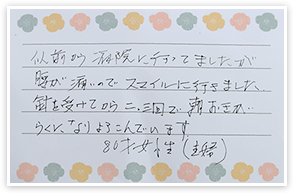 以前から病院に行ってましたが
腰が痛いのでスマイルに行きました、
針を受けてから二、三回で朝おきが
らくになりよろこんでいます
80才女性(主婦)